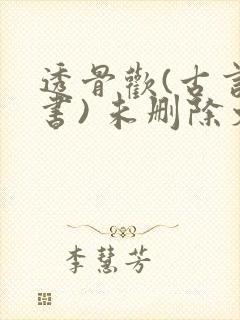 透骨歡(古言
書)未删除
李慧芳